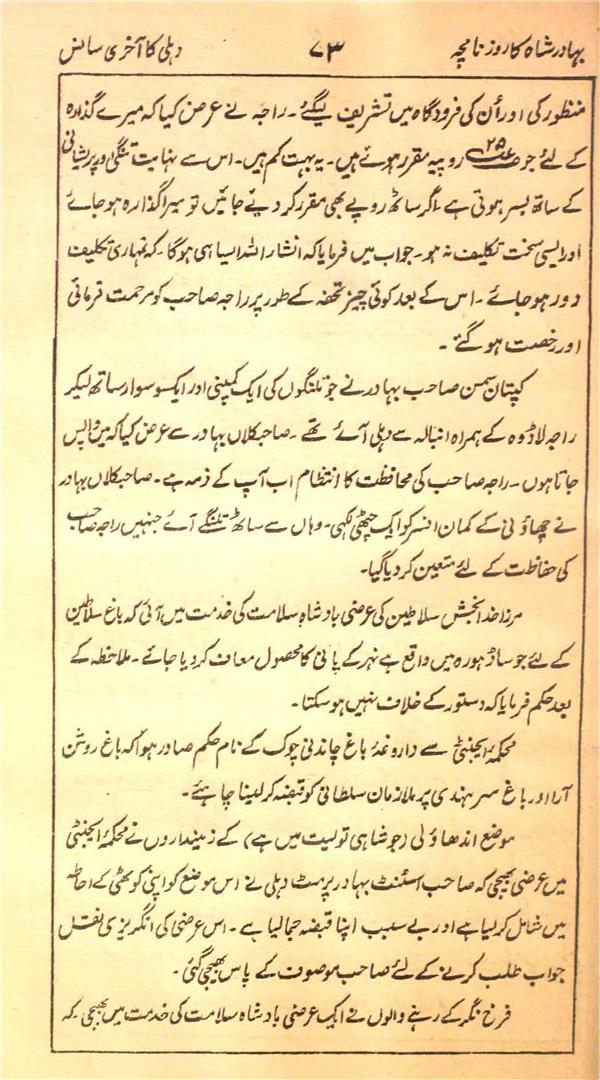 بہادر شاہ کا روزنامچہ ۷۳ دہلی کا آخری سانس
منظور کی اور اُن کی فرودگاہ میں تشریف لیگئے۔ راجہ نے عرض کیا کہ میرے گذارہ
کے لئے جو ۲۵ روپیہ مقرر ہوئے ہیں۔ یہ بہت کم ہیں۔ اس سے نہایت تنگی و پریشانی
کے ساتھ بسر ہوتی ہے اگر ساٹھ روپے بھی مقرر کر دیئے جائیں تو میرا گذارہ ہو جائے
اور ایسی سخت تکلیف نہ ہو۔ جواب میں فرمایا کہ انشاء اللہ ایسا ہی ہوگا۔ کہ تمہاری تکلیف
دور ہو جائے۔ اس کے بعد کوئی چیز تحفہ کے طور پر راجہ صاحب کو مرحمت فرمائی
اور رخصت ہو گئے۔
کپتان سمن صاحب بہادر نے جو تلنگوں کی ایک کمپنی اور ایکسو سوار ساتھ لیکر
راجہ لاڈوہ کے ہمراہ انبالہ سے دہلی آئے تھے۔ صاحبکلاں بہادر سے عرض کیا کہ میں واپس
جاتا ہوں۔ راجہ صاحب کی محافظت کا انتظام اب آپ کے ذمہ ہے۔ صاحبکلاں بہادر
نے چھاؤنی کے کمان افسر کو ایک چٹھی لکھی۔ وہاں سے ساٹھ تلنگے آئے جنہیں راجہ صاحب
کی حفاظت کے لئے متعین کر دیا گیا۔
مرزا خدا بخش سلاطین کی عرضی بادشاہ سلامت کی خدمت میں آئی کہ باغ سلاطین
کے لئے جو ساڈہورہ میں واقع ہے نہر کے پانی کا محصول معاف کر دیا جائے۔ ملاحظہ کے
بعد حکم فرمایا کہ دستور کے خلاف نہیں ہو سکتا۔
محکمۂ ایجنٹی سے داروغۂ باغ چاندنی چوک کے نام حکم صادر ہوا کہ باغ روشن
آرا اور باغ سرہندی پر ملازمان سلطانی کو قبضہ کر لینا چاہئے۔
موضع اندھاؤلی (جو شاہی تولیت میں ہے) کے زمینداروں نے محکمۂ ایجنٹی
میں عرضی بھیجی کہ صاحب اسٹنٹ بہادر پرمٹ دہلی نے اس موضع کو اپنی کوٹھی کے احاطہ
میں شامل کر لیا ہے اور بے سبب اپنا قبضہ جما لیا ہے۔ اس عرضی کی انگریزی نقل
جواب طلب کرنے کے لئے صاحب موصوف کے پاس بھیجی گئی۔
فرخ نگر کے رہنے والوں نے ایک عرضی بادشاہ سلامت کی خدمت میں بھیجی۔ کہ